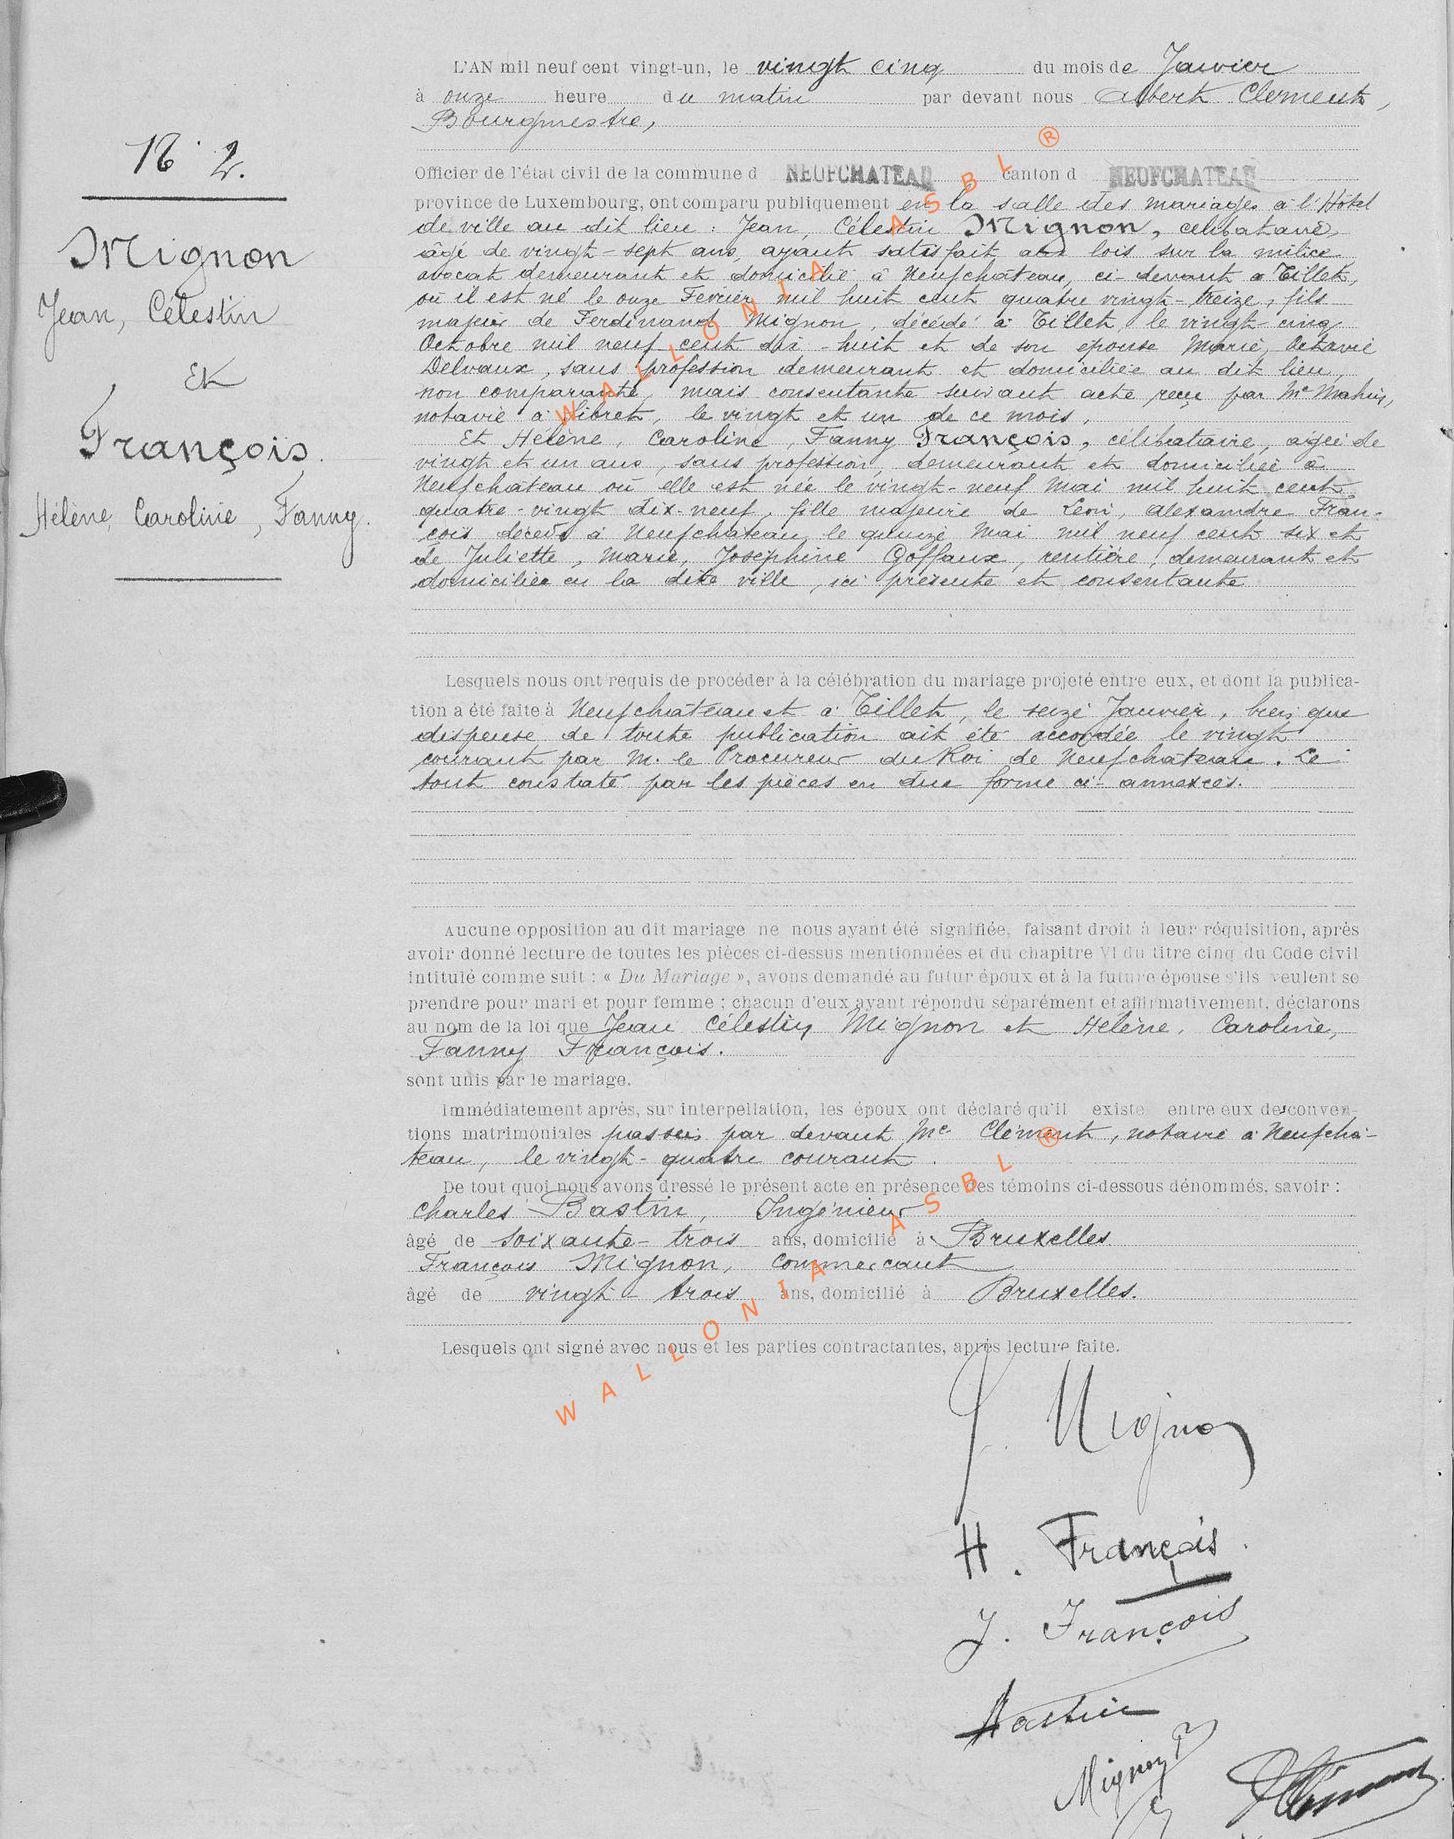 N° 2.
Mignon
Jean, Célestin
Et
François.
Hélène, Caroline, Fanny.
L'AN mil neuf cent vingt-un, le vingt cinq du mois de Janvier
à onze heure du matin par devant nous Albert Clement,
Bourgmestre,
Officier de l'état civil de la commune d NEUFCHATEAU canton d NEUFCHATEAU
province de Luxembourg, ont comparu publiquement en la salle des mariages à l'Hôtel
de ville au dit lieu : Jean, Célestin Mignon, célibataire,
âgé de vingt-sept ans, ayant satisfait aux lois sur la milice
avocat demeurant et domicilié à Neufchâteau, ci-devant à Tillet,
où il est né le onze Fevrier mil huit cent quatre vingt-treize, fils
majeur de Ferdinand Mignon, décédé à Tillet, le vingt-cinq
Octobre mil neuf cent dix-huit et de son épouse Marie, Octavie
Delvaux, sans profession demeurant et domiciliée au dit lieu,
non comparante, mais consentante suivant acte reçu par Me Mahin,
notaire à Sibret, le vingt et un de ce mois.
Et Hélène, Caroline, Fanny François, célibataire, agée de
vingt et un ans, sans profession, demeurant et domiciliée à
Neufchâteau où elle est née le vingt-neuf Mai mil huit cent
quatre-vingt dix-neuf, fille majeure de Léon, Alexandre Fran-
çois décédé à Neufchâteau le quinze Mai mil neuf cent six et
de Juliette, Marie, Joséphine Goffaux, rentière, demeurant et
domiciliée en la dite ville, ici présente et consentante
Lesquels nous ont requis de procéder à la célébration du mariage projeté entre eux, et dont la publica-
tion a été faite à Neufchâteau et à Tillet, le seize Janvier, bien que
dispense de toute publication ait été accordée le vingt
courant par M. le Procureur du Roi de Neufchâteau. Le
tout constaté par les pièces en due forme ci-annexées.
Aucune opposition au dit mariage ne nous ayant été signifiée, faisant droit à leur réquisition, après
avoir donné lecture de toutes les pièces ci-dessus mentionnées et du chapitre VI du titre cinq du Code civil
intitulé comme suit : « Du Mariage », avons demandé au futur époux et à la future épouse s'ils veulent se
prendre pour mari et pour femme ; chacun d'eux ayant répondu séparément et affirmativement, déclarons
au nom de la loi que Jean Célestin Mignon et Hélène, Caroline,
Fanny François.
sont unis par le mariage.
Immédiatement après, sur interpellation, les époux ont déclaré qu'il existe entre eux des conven-
tions matrimoniales passées par devant Me Clément, notaire à Neufchâ-
teau, le vingt-quatre courant.
De tout quoi nous avons dressé le présent acte en présence des témoins ci-dessous dénommés, savoir :
Charles Bastin, Ingénieur
âgé de soixante-trois ans, domicilié à Bruxelles
François Mignon, commerçant
âgé de vingt-trois ans, domicilié à Bruxelles.
Lesquels ont signé avec nous et les parties contractantes, après lecture faite.
J. Mignon
H. François.
J. François
Bastin
Mignon F
AClément
WALLONIA ASBL ®
WALLONIA ASBL ®